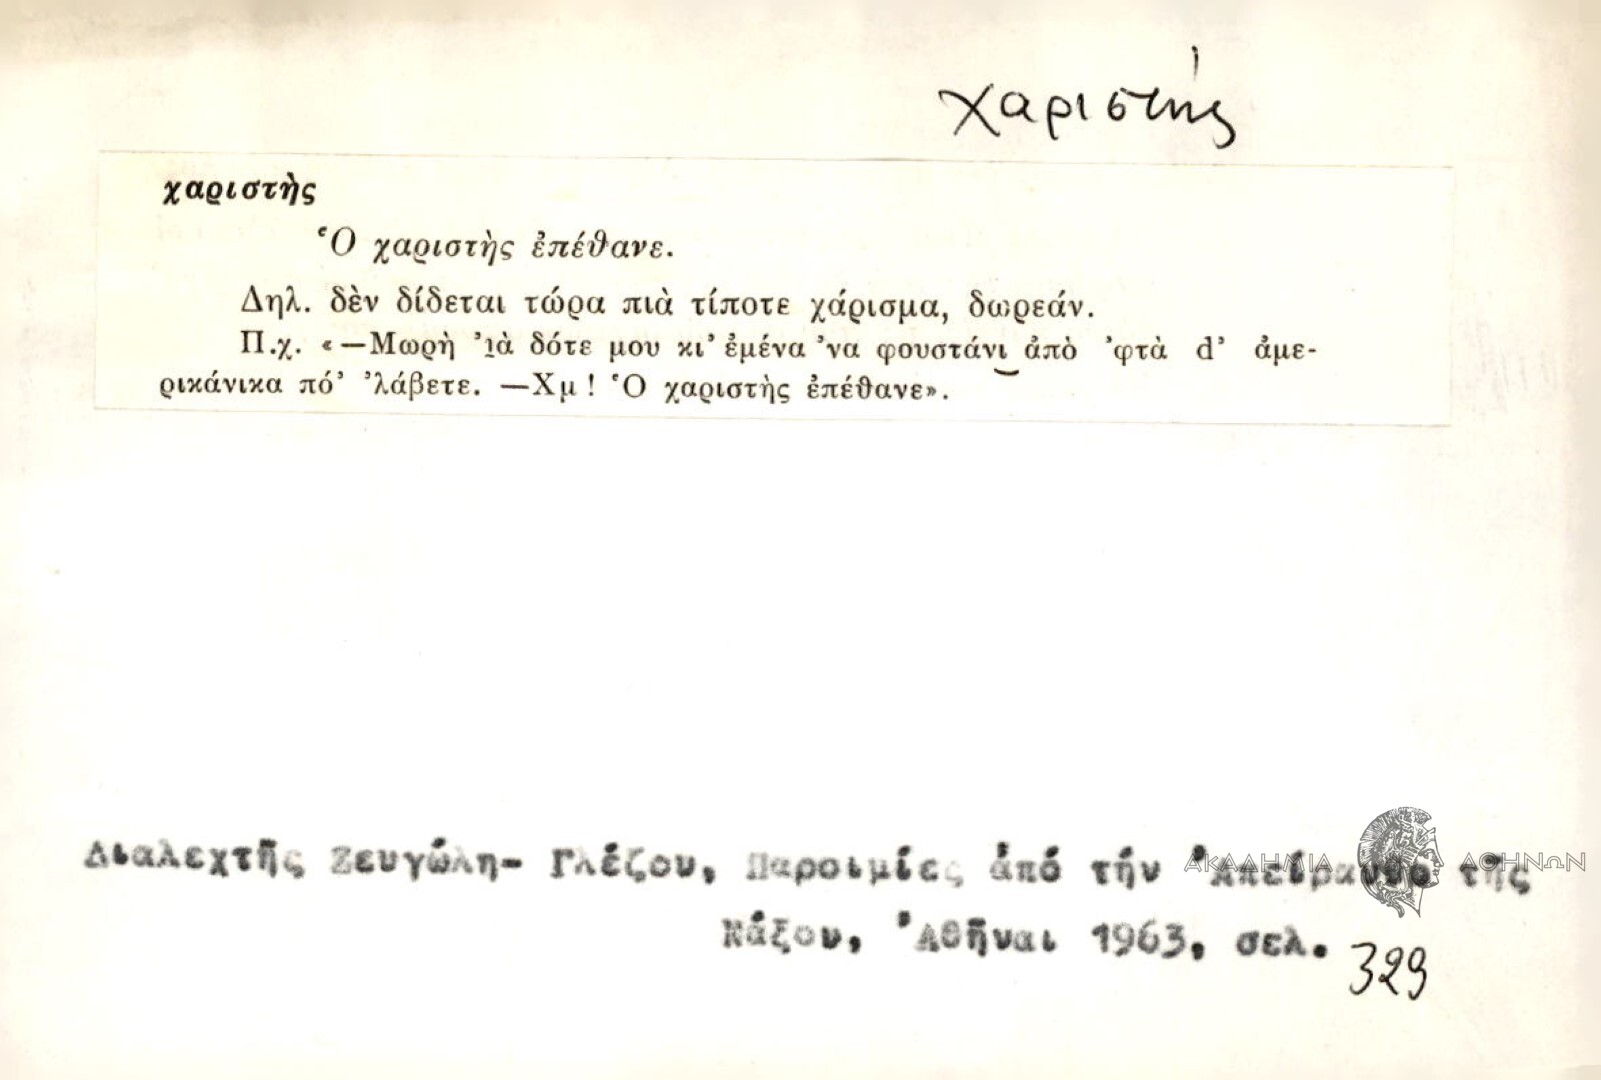 χαριστής
χαριστὴς
Ὁ χαριστὴς ἐπέθανε.
Δηλ. δὲν δίδεται τώρα πιὰ τίποτε χάρισμα, δωρεάν.
Π.χ. «—Μωρὴ ’ι̯ὰ δότε μου κι’ ἐμένα ’να φουστάνι ἀπὸ ’φτὰ d’ ἀμε-
ρικάνικα πό’ ’λάβετε. —Χμ! Ὁ χαριστὴς ἐπέθανε».
Διαλεχτῆς Ζευγώλη- Γλέζου, Παροιμίες ἀπό τήν Ἀπείρανθο τῆς
Νάξου, Ἀθῆναι 1963, σελ. 329
ΑΚΑΔΗΜΙΑ ΑΘΗΝΩΝ